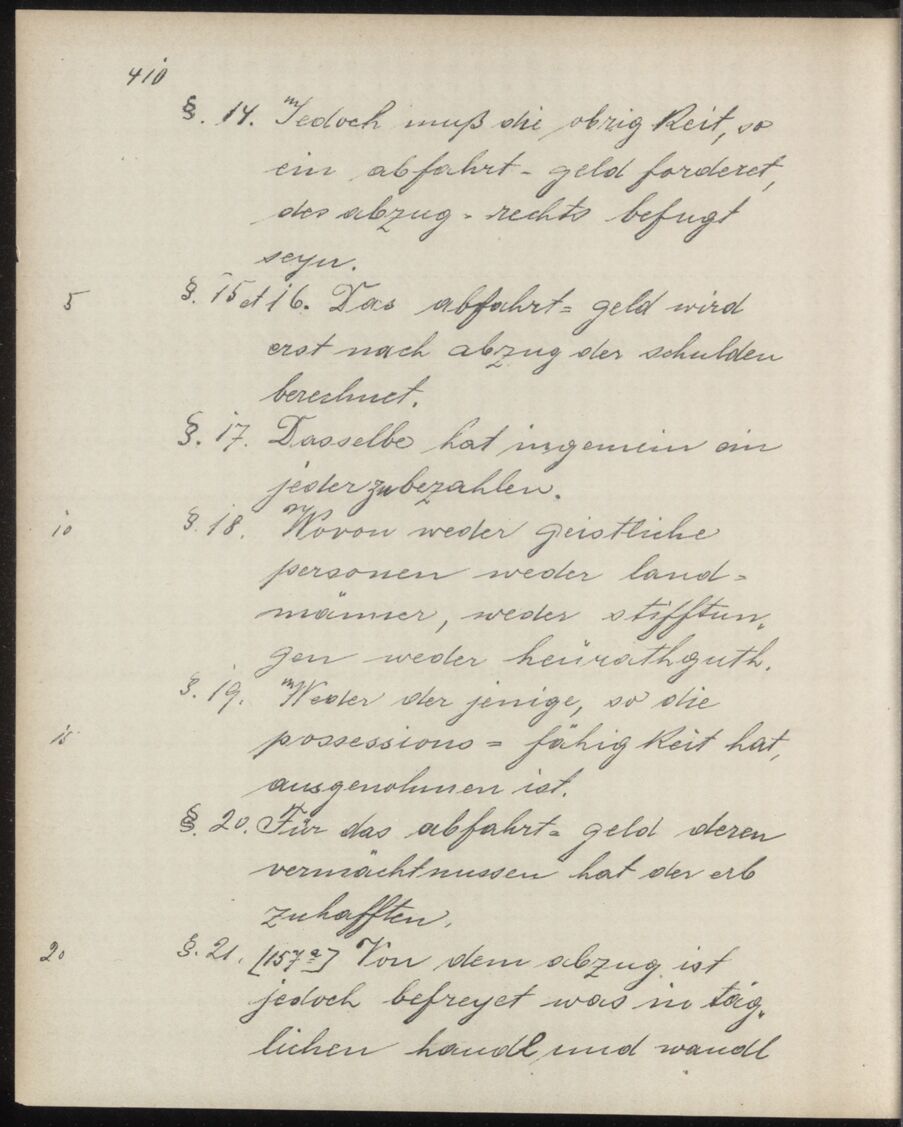 410
§. 14. Jedoch muß die obrigkeit, so
ein abfahrt- geld forderet,
des abzug- rechts befugt
seyn.
5 §. 15 et 16. Das abfahrt= geld wird
erst nach abzug der schulden
bereshnet.
§. 17. Dasselbe hat ingemein ein
jeder zu bezahlen.
10 §. 18. Wovon weder geistliche
personen weder land=
männer, weder stifftun„
gen weder heürathguth.
§. 19. Weder der jenige, so die
15 possessions= fähigkeit hat,
ausgenohmen ist.
§. 20. Für das abfahrt= geld deren
vermächtnussen hat der erb
zuhafften.
20 §. 21. [157ª] Von dem abzug ist
jedoch befreyet was in täg„
lichen handl und wandl